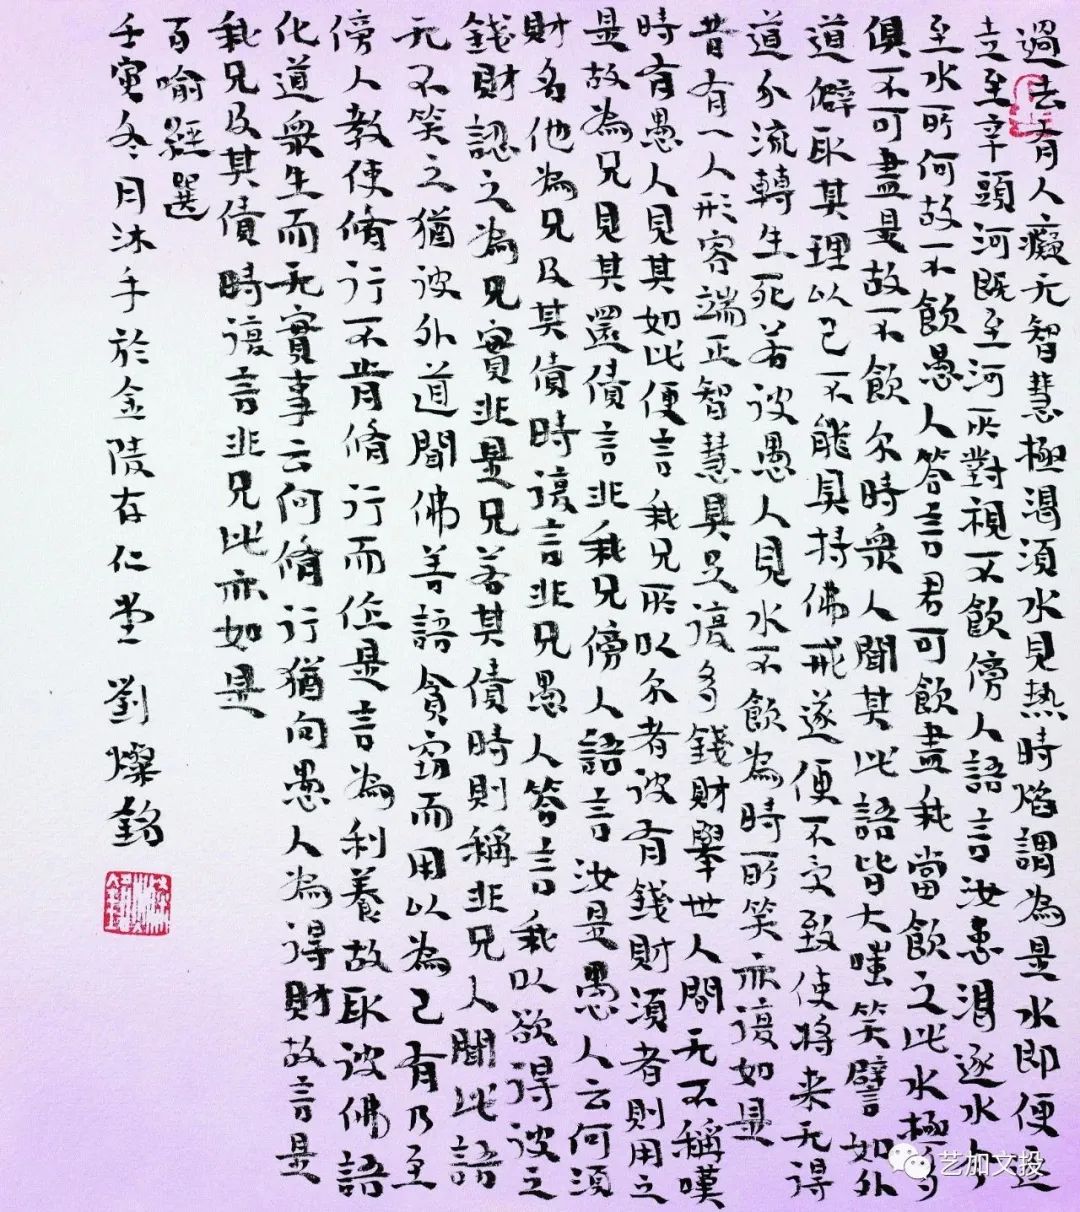 過去有人癡无智慧極渴須水見熱時焰謂為是水即便逐
走至辛頭河既至河所對視不飲傍人語言汝患渴逐水今
至水所何故不飲愚人答言君可飲盡我當飲之此水極多
俱不可盡是故不飲尔時衆人聞其此語皆大嗤笑譬如外
道僻取其理以己不能具持佛戒遂便不受致使將来无得
道分流轉生死若彼愚人見水不飲為時所笑亦復如是
昔有一人形容端正智慧具足復多錢財舉世人間无不稱嘆
時有愚人見其如此便言我兄所以尔者彼有錢財須者則用之
是故為兄見其還債言非我兄傍人語言汝是愚人云何須
財名他為兄及其債時復言非兄愚人答言我以欲得彼之
錢財認之為兄實非是兄若其債時則稱非兄人聞此語
无不笑之猶彼外道聞佛善語貪竊而用以為己有乃至
傍人教使脩行不肯脩行而作是言為利養故取彼佛語
化道衆生而无實事云何脩行猶向愚人為得財故言是
我兄及其債時復言非兄此亦如是
百喻經選
壬寅冬月沐手於金陵存仁堂 劉燦銘
艺加文投